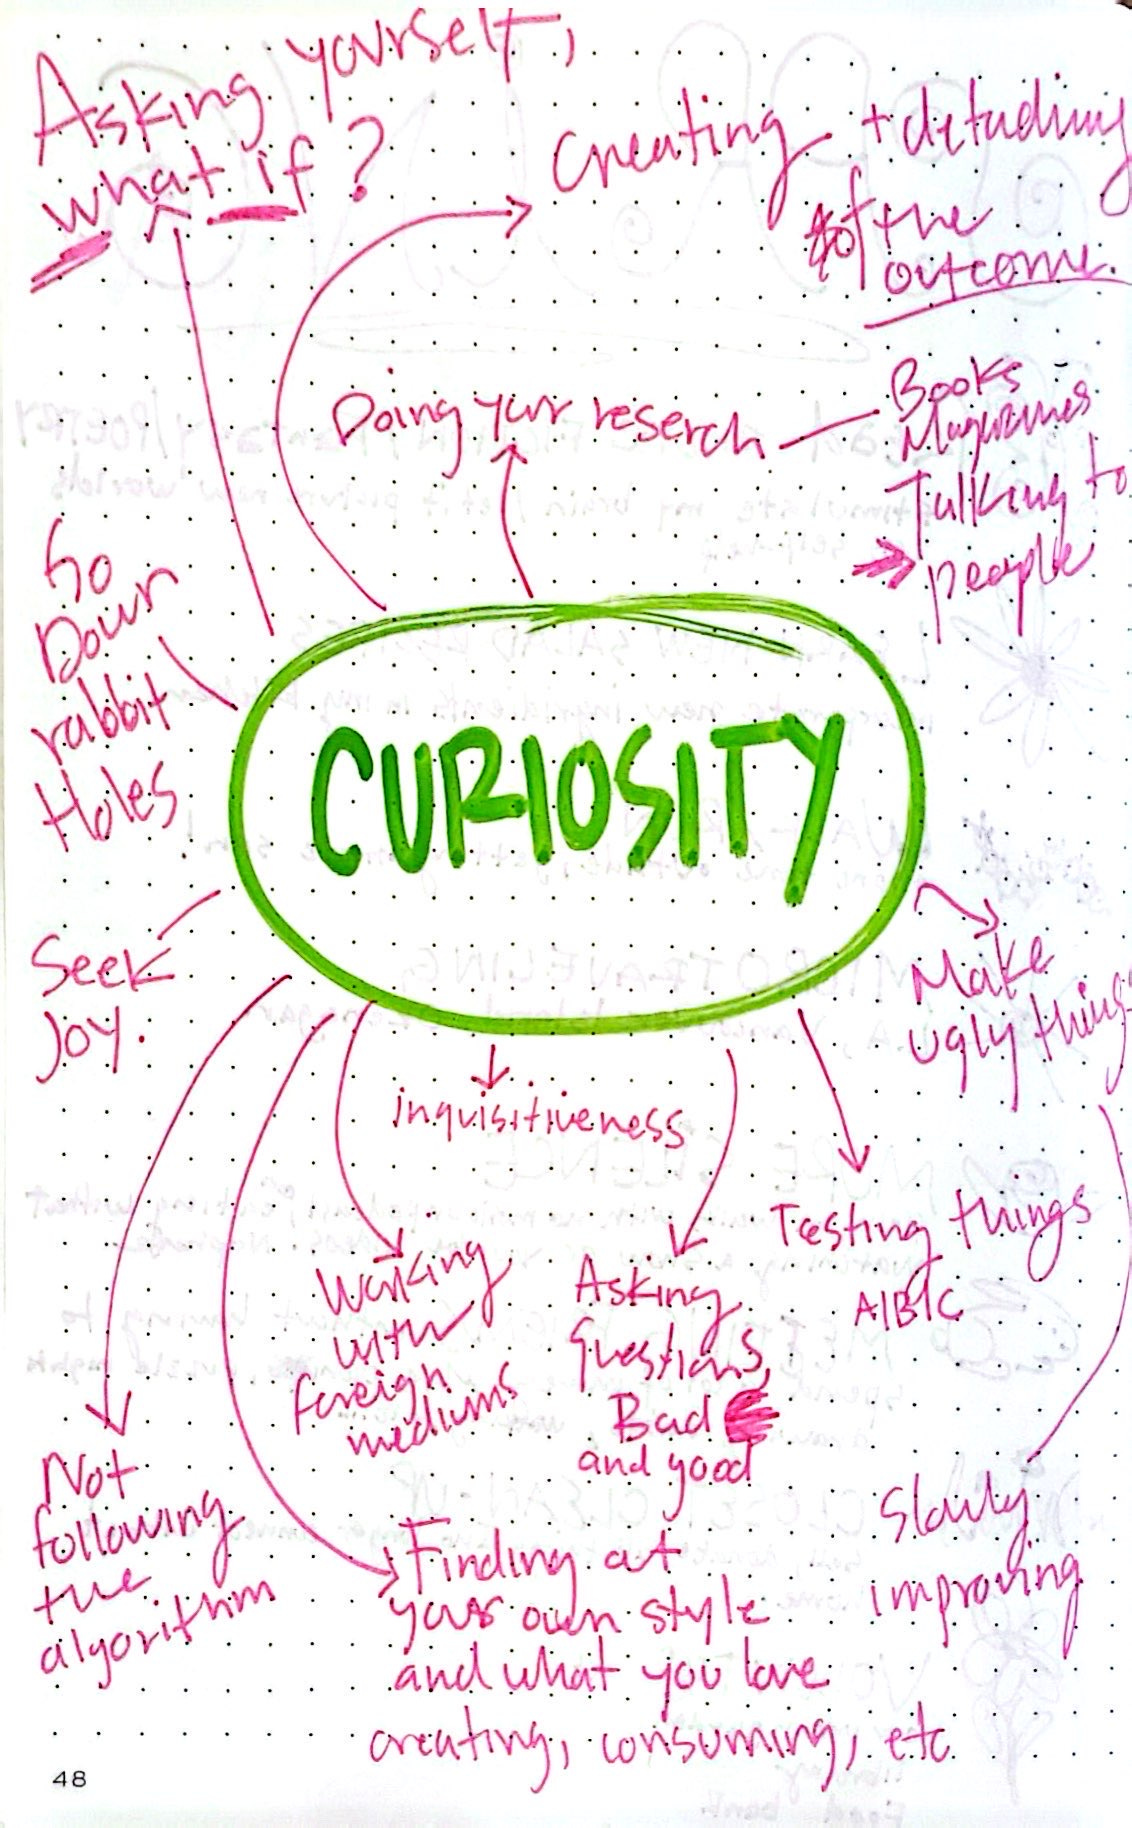 Asking yourself,
what if?
Creating + detaching
of the
outcome.
Doing your reserch
Books
Magazines
Talking to
people
Go
Down
rabbit
Holes
CURIOSITY
Seek
Joy.
Make
ugly things
inquisitiveness
Testing things
A/B/C
Working
with
foreign
mediums
Asking
Questions,
Bad
and good
Not
following
the
algorithm
Slowly
improving
Finding out
your own style
and what you love
creating, consuming, etc
48